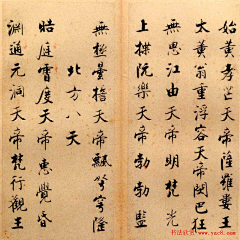 始黄孝芒天帝薩羅婁王
太黄翁重浮容天帝閔巴狂
無思江由天帝明梵光
上揲阮樂天帝勃勃監
無極曇誓天帝飄弩穹隆
北方八天
皓庭霄度天帝惠覺昏
淵通元洞天帝梵行觀生
书法欣赏
www.yac8.com